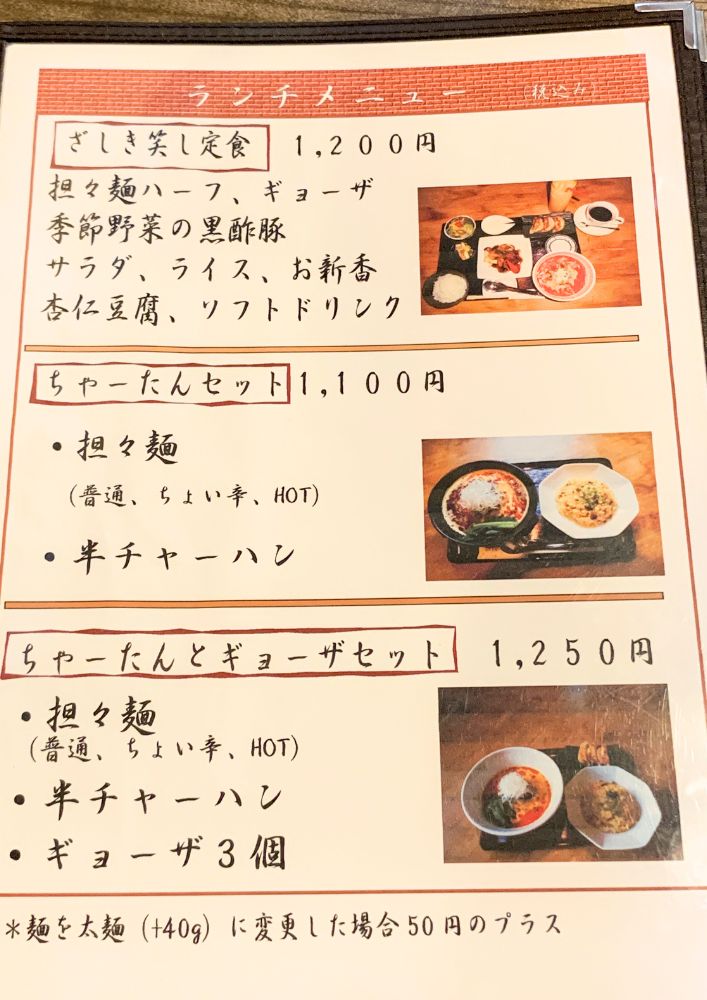 ランチメニュー (税込み)
ざしき笑し定食 1,200円
担々麺ハーフ、ギョーザ
季節野菜の黒酢豚
サラダ、ライス、お新香
杏仁豆腐、ソフトドリンク
ちゃーたんセット 1,100円
・担々麺
(普通、ちょい辛、HOT)
・半チャーハン
ちゃーたんとギョーザセット 1,250円
・担々麺
(普通、ちょい辛、HOT)
・半チャーハン
・ギョーザ3個
*麺を太麺(+40g)に変更した場合50円のプラス